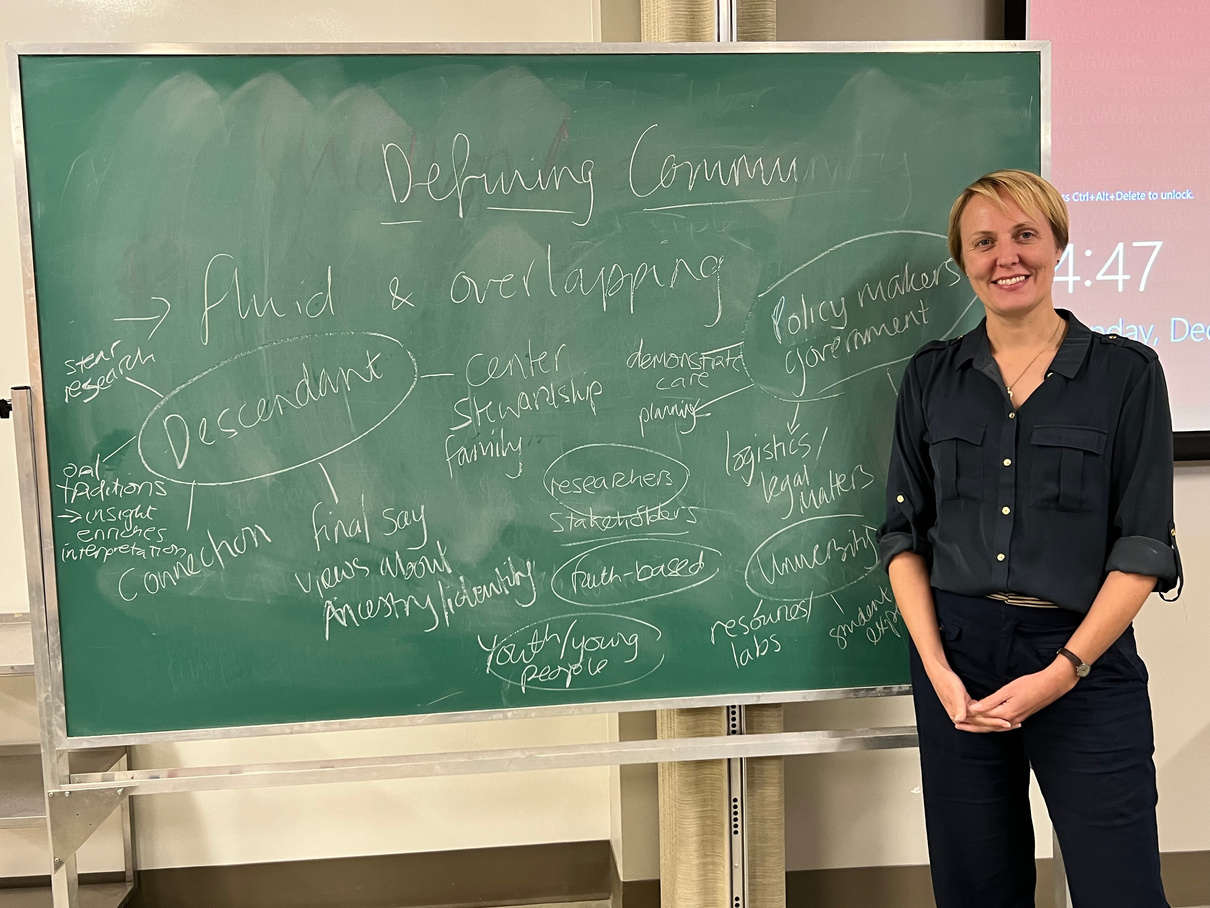 Defining Community
→ fluid & overlapping
steer
research
Descendant
center
stewardship
family
oral
traditions
→ insight
enriches
interpretation
Connection
final say
views about
Ancestry/identity
demonstrate
care
planning
Policy makers
government
logistics/
legal
matters
researchers
stakeholders
faith-based
Youth/young
people
University
resources/
labs
student
ss Ctrl+Alt+Delete to unlock.
4:47
nday, Dec